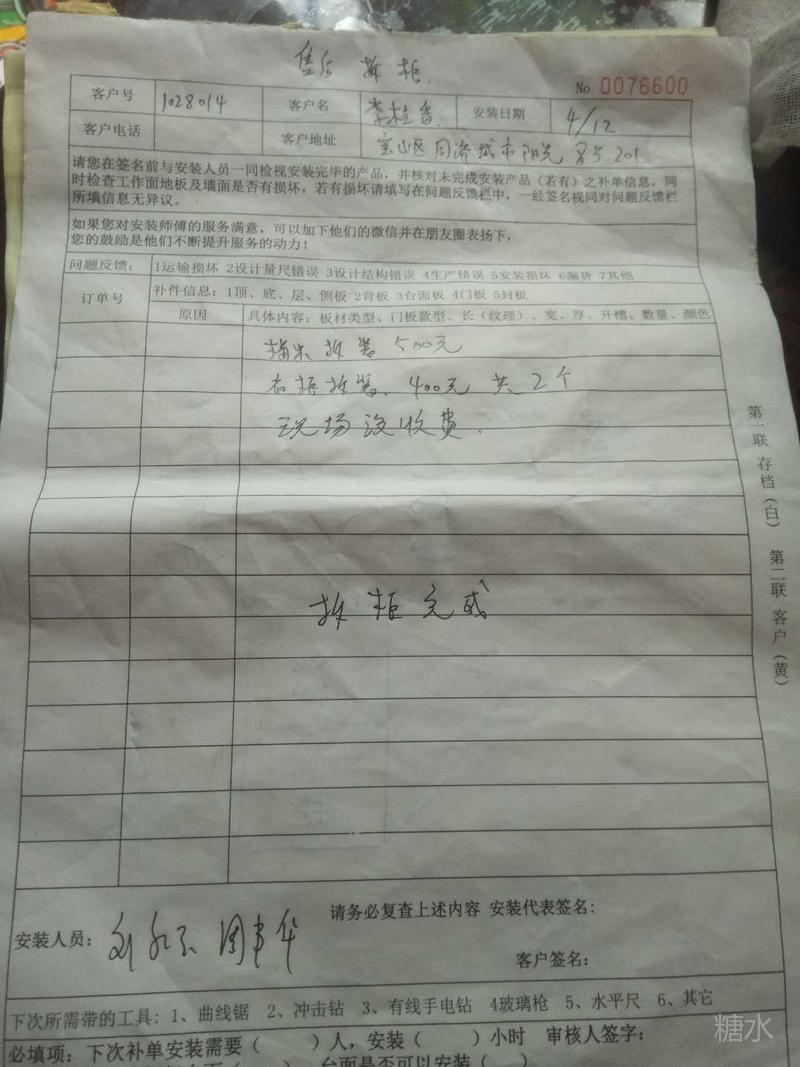 售后 拆柜
No 0076600
客户号 1028014 客户名 李桂香 安装日期 4/12
客户电话 客户地址 宝山区同济城市阳光 8号 201
请您在签名前与安装人员一同检视安装完毕的产品，并核对未完成安装产品（若有）之补单信息，同
时检查工作面地板及墙面是否有损坏，若有损坏请填写在问题反馈栏中，一经签名视同对问题反馈栏
所填信息无异议。
如果您对安装师傅的服务满意，可以加下他们的微信并在朋友圈表扬下，
您的鼓励是他们不断提升服务的动力！
问题反馈： 1运输损坏 2设计量尺错误 3设计结构错误 4生产错误 5安装损坏 6漏货 7其他
订单号 补件信息：1顶、底、层、侧板 2背板 3台面板 4门板 5封板
原因 具体内容：板材类型、门板款型、长（纹理）、宽、厚、开槽、数量、颜色
拆装 500元
衣柜拆装 400元 共2个
现场没收费.
拆柜完成
第一联 存档（白） 第二联 客户（黄）
请务必复查上述内容 安装代表签名：
安装人员：
客户签名：
下次所需带的工具：1、曲线锯 2、冲击钻 3、有线手电钻 4玻璃枪 5、水平尺 6、其它
必填项：下次补单安装需要（ ）人，安装（ ）小时 审核人签字：
台面是否可以安装（ ）
糖水